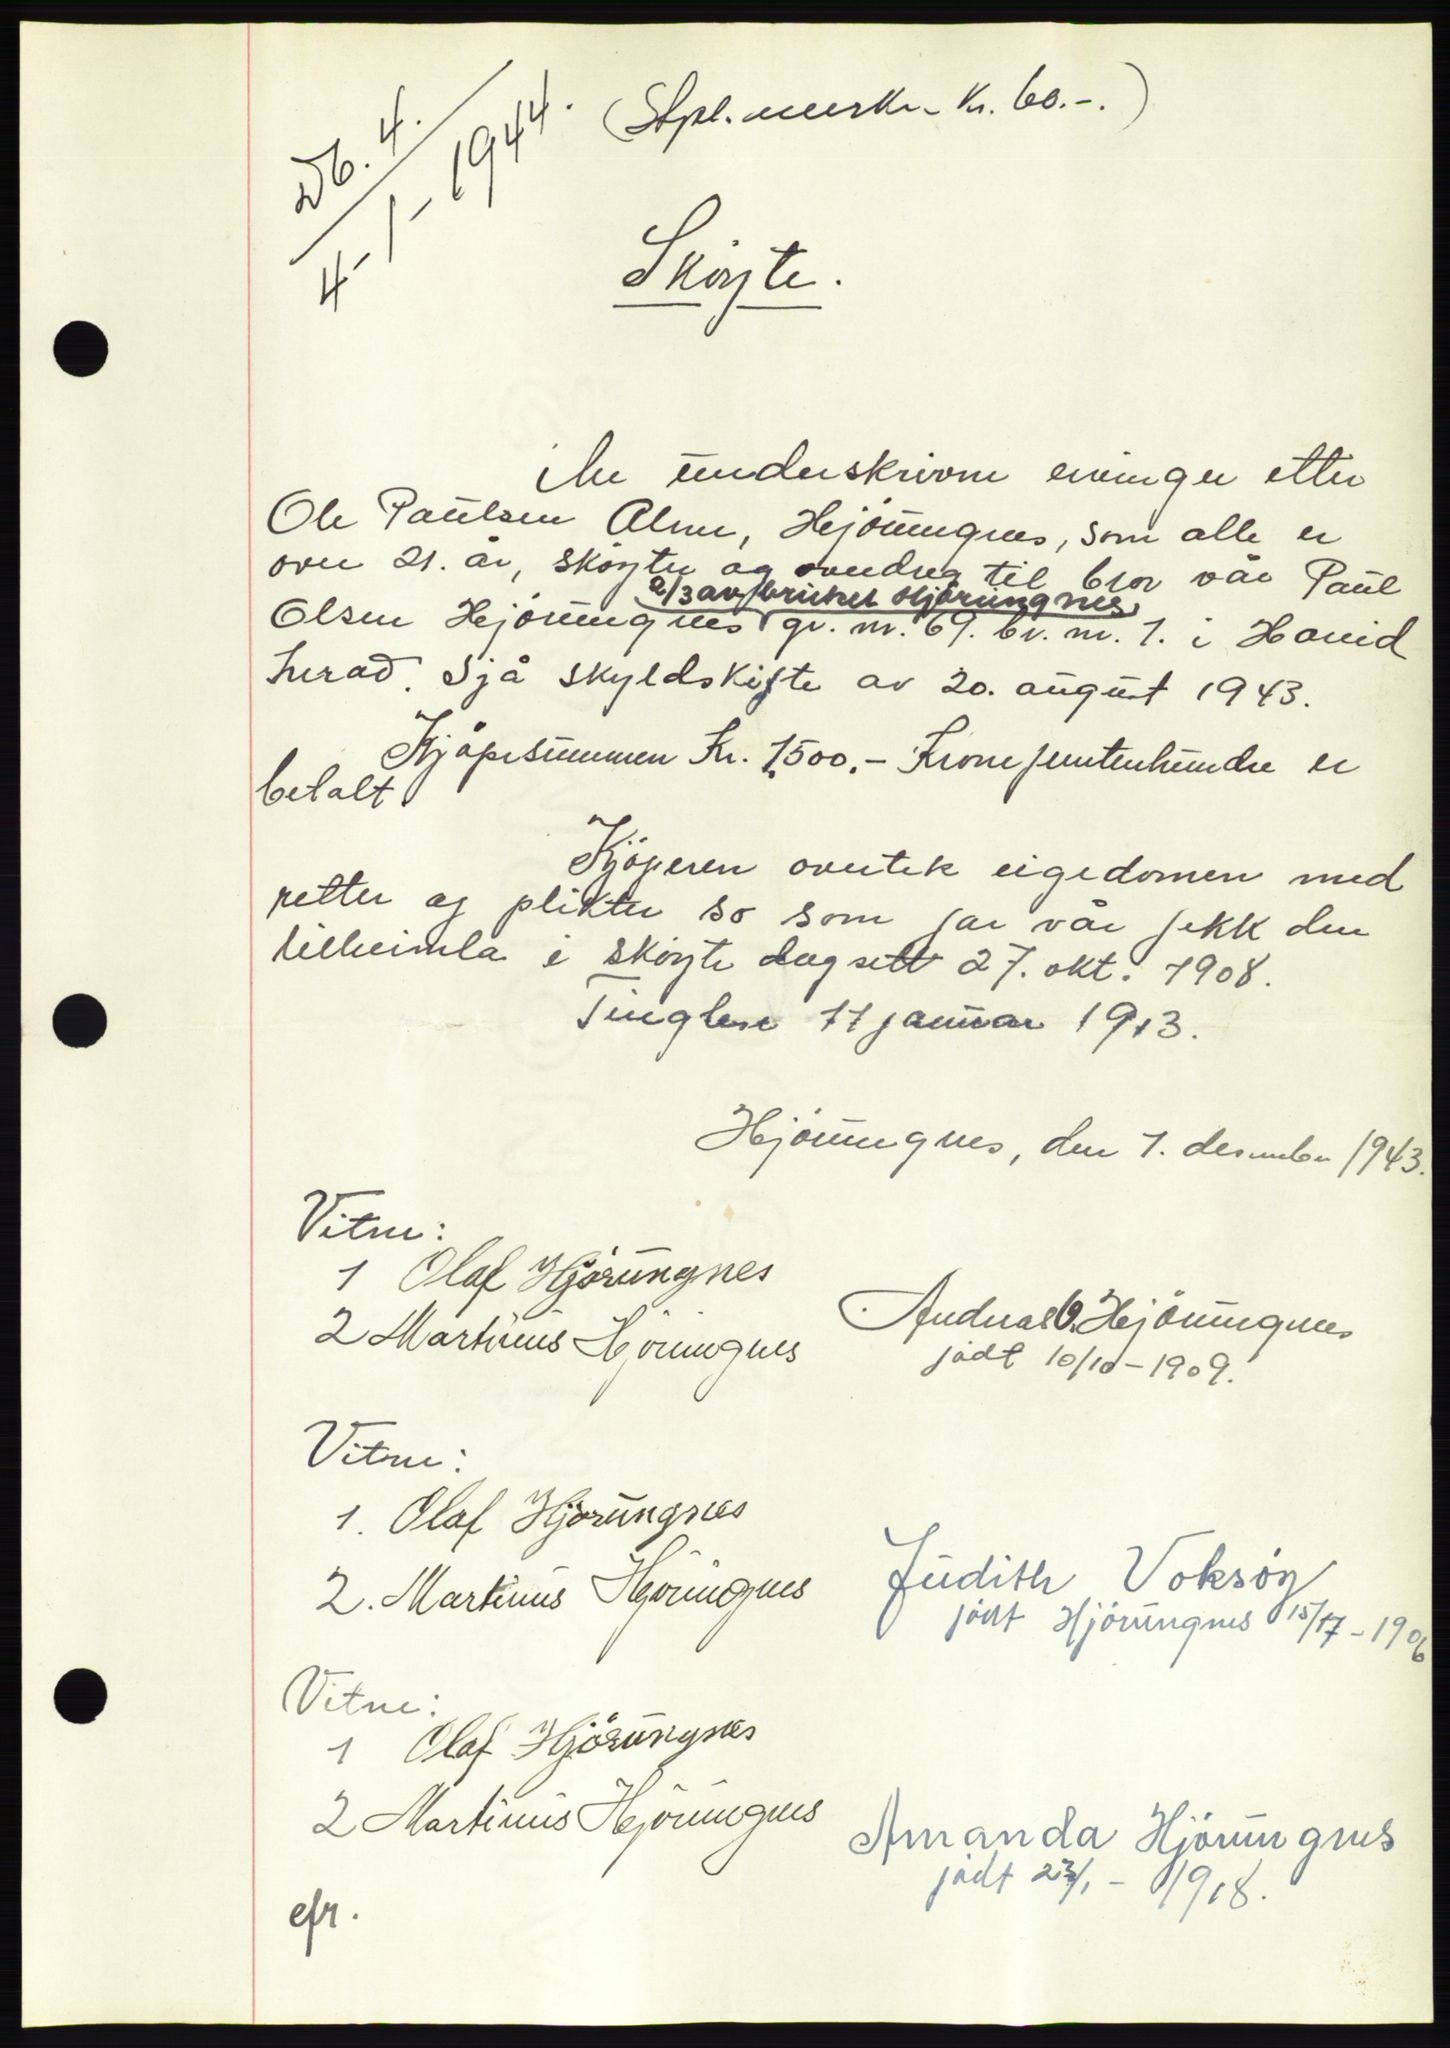 Db. 4.
4-1-1944.
(Stpl.merke Kr. 60.-.)
Skøyte.
Me underskrivne ervinger etter
Ole Paulsen Alme, Hjørungnes, som alle er
over 21. år, skøyter og overdreg til bror vår Paul
2/3 av bruket Hjørungnes
Olsen Hjørungnes gr. nr. 69. br. nr. 1. i Hareid
herad. Sjå skyldskifte av 20. august 1943.
Kjøpesummen Kr. 1500.- Krone femtenhundre er
betalt
Kjøperen overtek eigedomen med
retter og plikter so som far vår fekk den
tilheimla i skøyte dagsett 27. okt. 1908.
Tinglese 11 januar 1913.
Hjørungnes, den 1. desember 1943.
Vitne:
1 Olaf Hjørungnes
2 Martinus Hjørungnes
Andreas O. Hjørungnes
født 10/10-1909.
Vitne:
1. Olaf Hjørungnes
2. Martinus Hjørungnes
Judith Voksøy
født Hjørungnes 15/17-1906
Vitne:
1 Olaf Hjørungnes
2 Martinus Hjørungnes
Amanda Hjørungnes
født 23/1 - 1918.
efr.